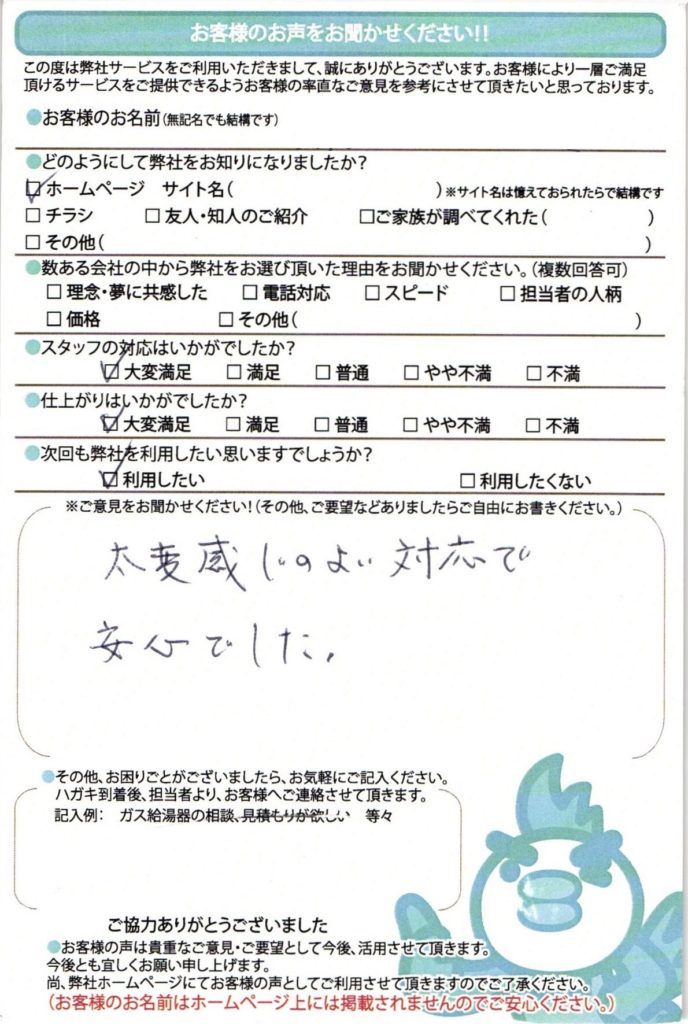 お客様のお声をお聞かせください!!
この度は弊社サービスをご利用いただきまして、誠にありがとうございます。お客様により一層ご満足
頂けるサービスをご提供できるようお客様の率直なご意見を参考にさせて頂きたいと思っております。
●お客様のお名前(無記名でも結構です)
●どのようにして弊社をお知りになりましたか?
☑ホームページ サイト名( )※サイト名は憶えておられたらで結構です
□チラシ □友人・知人のご紹介 □ご家族が調べてくれた( )
□その他( )
●数ある会社の中から弊社をお選び頂いた理由をお聞かせください。(複数回答可)
□理念・夢に共感した □電話対応 □スピード □担当者の人柄
□価格 □その他( )
●スタッフの対応はいかがでしたか?
☑大変満足 □満足 □普通 □やや不満 □不満
●仕上がりはいかがでしたか?
☑大変満足 □満足 □普通 □やや不満 □不満
●次回も弊社を利用したい思いますでしょうか?
☑利用したい □利用したくない
※ご意見をお聞かせください!(その他、ご要望などありましたらご自由にお書きください。)
大変感じのよい対応で
安心でした。
●その他、お困りごとがございましたら、お気軽にご記入ください。
ハガキ到着後、担当者より、お客様へご連絡させて頂きます。
記入例: ガス給湯器の相談、見積もりが欲しい 等々
ご協力ありがとうございました
●お客様の声は貴重なご意見・ご要望として今後、活用させて頂きます。
今後とも宜しくお願い申し上げます。
尚、弊社ホームページにてお客様の声としてご利用させて頂きますのでご了承ください。
(お客様のお名前はホームページ上には掲載されませんのでご安心ください。)